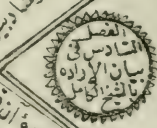 الفصل
السادس في
بيان الإرادة
بالشيخ الكامل